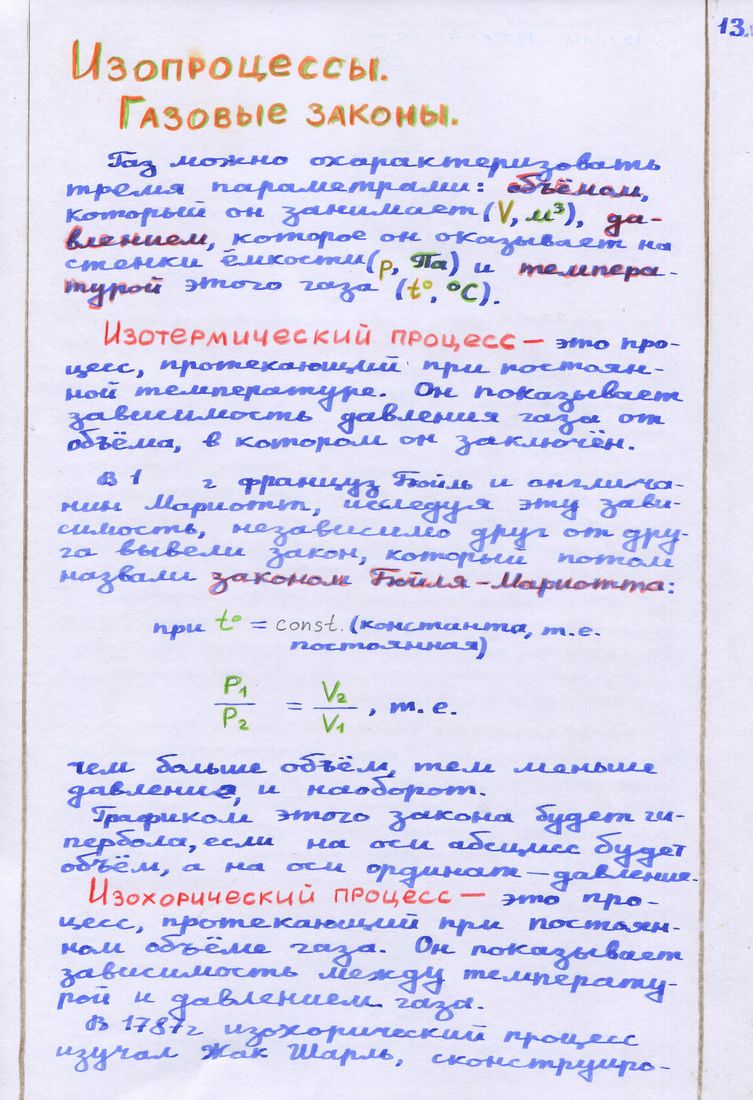 13.
Изопроцессы.
Газовые законы.
Газ можно охарактеризовать
тремя параметрами: объёмом,
который он занимает (V, м³), да-
влением, которое он оказывает на
стенки ёмкости (р, Па) и темпера-
турой этого газа (t°, °C).
Изотермический процесс — это про-
цесс, протекающий при постоян-
ной температуре. Он показывает
зависимость давления газа от
объёма, в котором он заключён.
В 1 г француз Бойль и англича-
нин Мариотт, исследуя эту зави-
симость, независимо друг от дру-
га вывели закон, который потом
назвали законом Бойля-Мариотта:
при t° = const. (константа, т.е.
постоянная)
P₁/P₂ = V₂/V₁, т.е.
чем больше объём, тем меньше
давление, и наоборот.
Графиком этого закона будет ги-
пербола, если на оси абсцисс будет
объём, а на оси ординат — давление.
Изохорический процесс — это про-
цесс, протекающий при постоян-
ном объёме газа. Он показывает
зависимость между температу-
рой и давлением газа.
В 1787г изохорический процесс
изучал Жак Шарль, сконструиро-